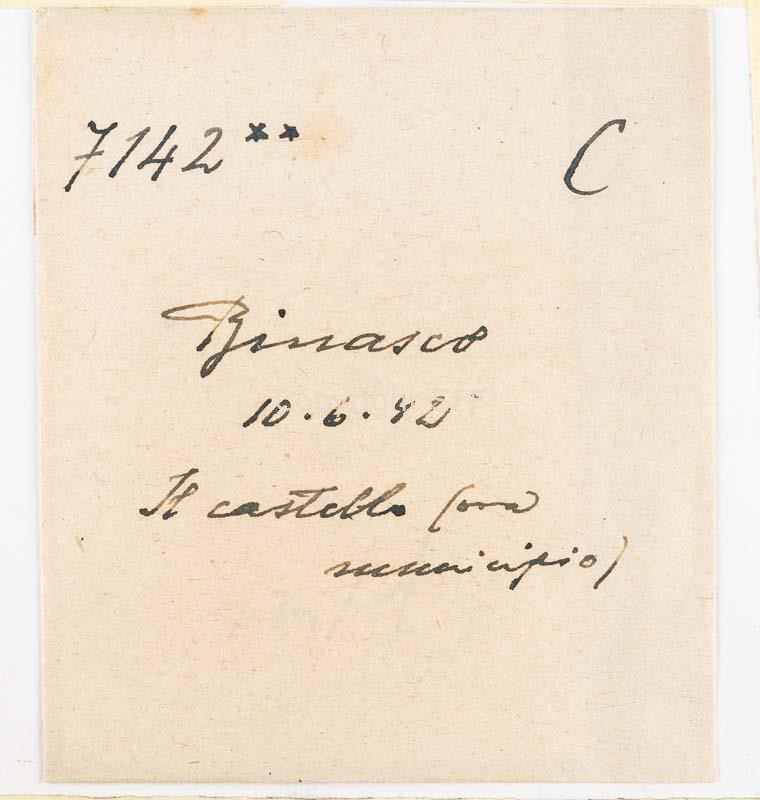 7142** C
Binasco
10.6.42
Il castello (ora
municipio)